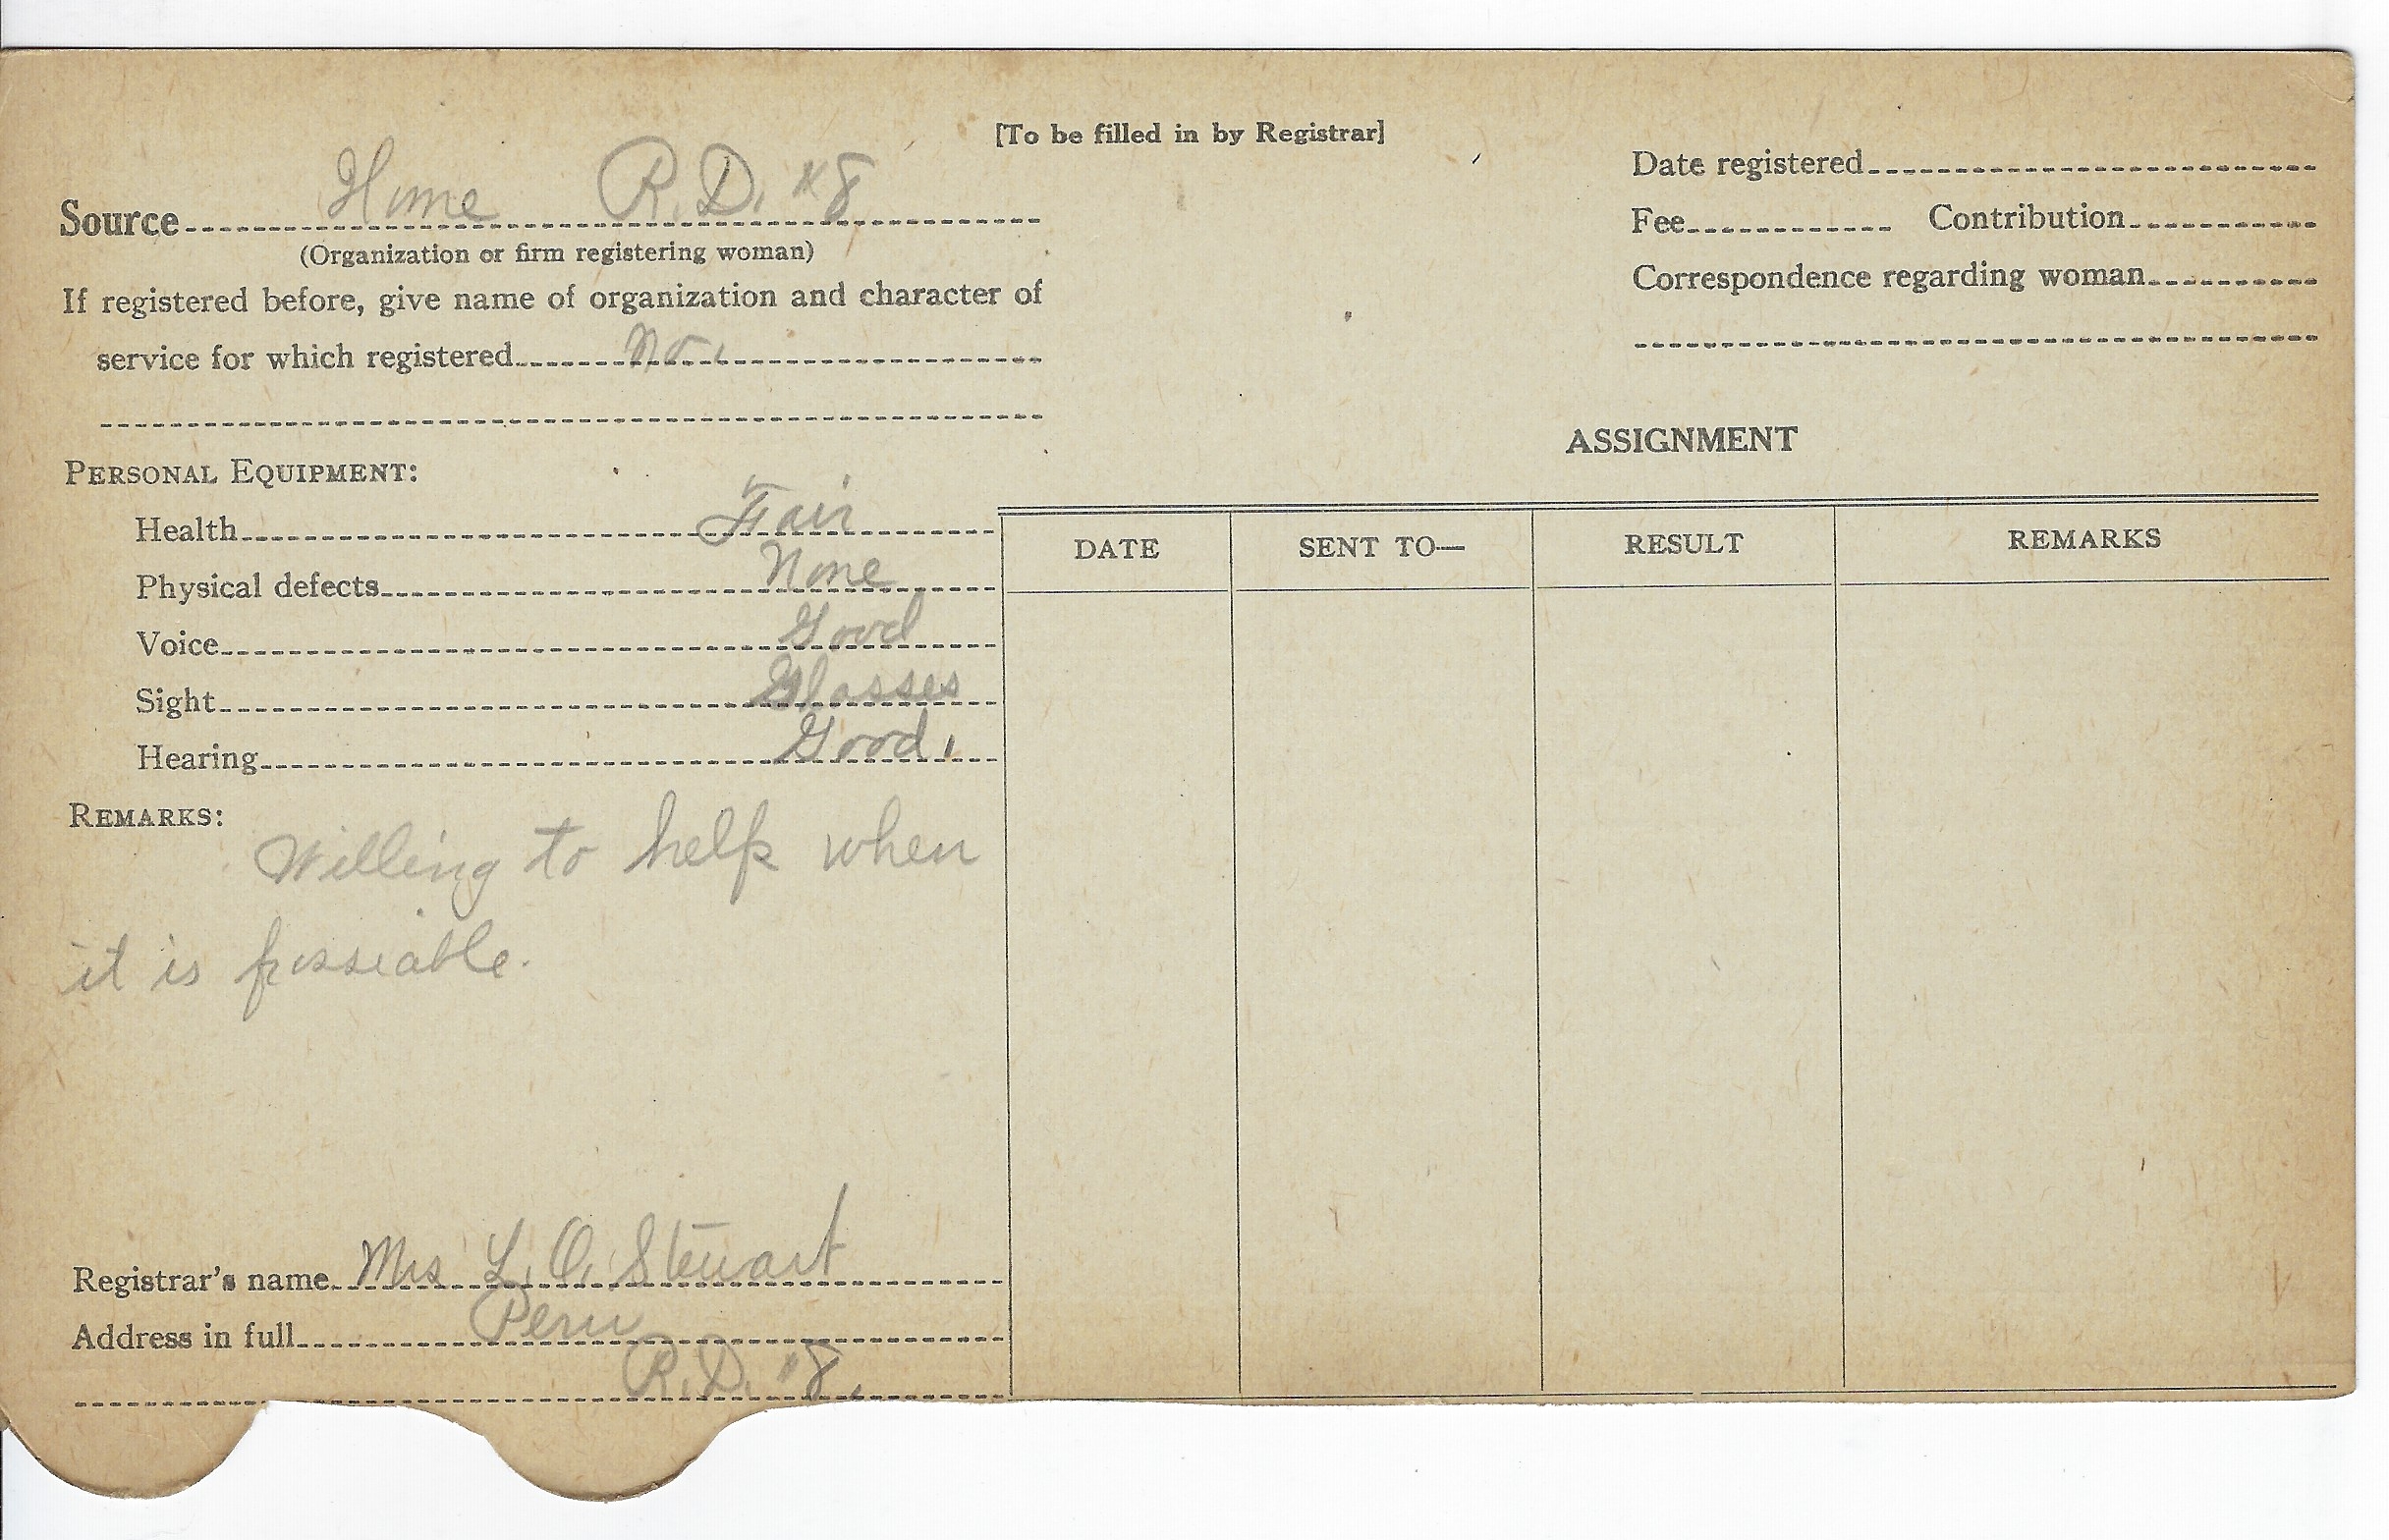 [To be filled in by Registrar]
Source Home R.D. #8
(Organization or firm registering woman)
If registered before, give name of organization and character of
service for which registered No.
PERSONAL EQUIPMENT:
Health Fair
Physical defects None
Voice Good
Sight Glasses
Hearing Good.
REMARKS:
Willing to help when
it is possiable.
Registrar's name Mrs L. O. Stewart
Address in full Peru
R.D. #8.
Date registered
Fee Contribution
Correspondence regarding woman
ASSIGNMENT
DATE SENT TO— RESULT REMARKS